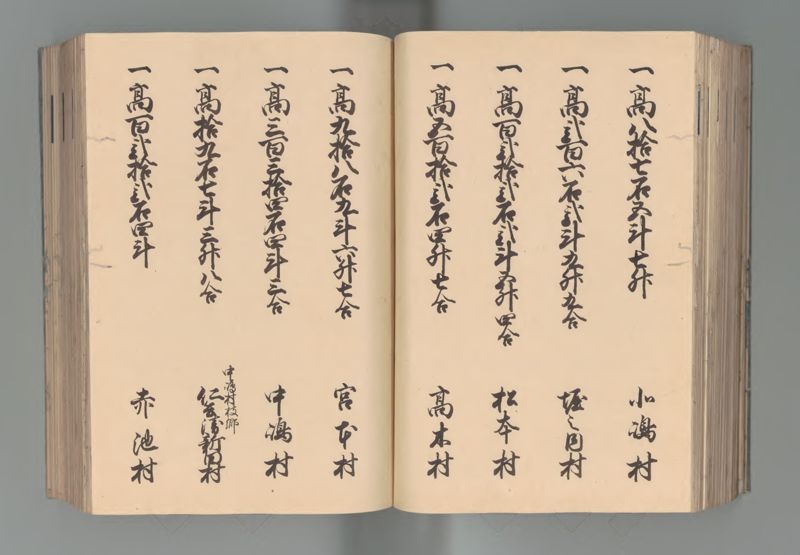 一高八拾七石五斗七升 小嶋村
一高弐百六石弐斗九升九合 堀之内村
一高百弐拾弐石弐斗五升四合 松本村
一高五百拾弐石四升七合 高木村
一高九拾八石九斗六升七合 宮本村
一高三百三拾四石四斗三合 中嶋村
一高拾九石七斗三升八合
中嶋村枝郷
新田村
一高百弐拾弐石四斗 赤池村